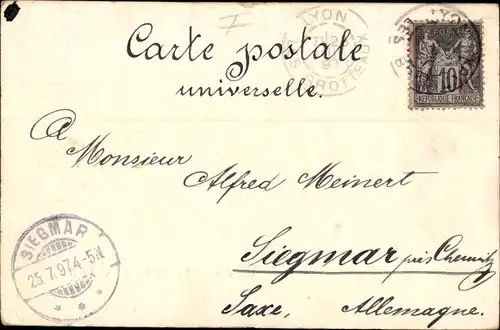 LYON
Carte postale
universelle.
POSTE
10
REPUBLIQUE FRANÇAISE
A
Monsieur
Alfred Meinert
Siegmar près Chemnitz
Saxe, Allemagne.
SIEGMAR
25.7.97.4-5N